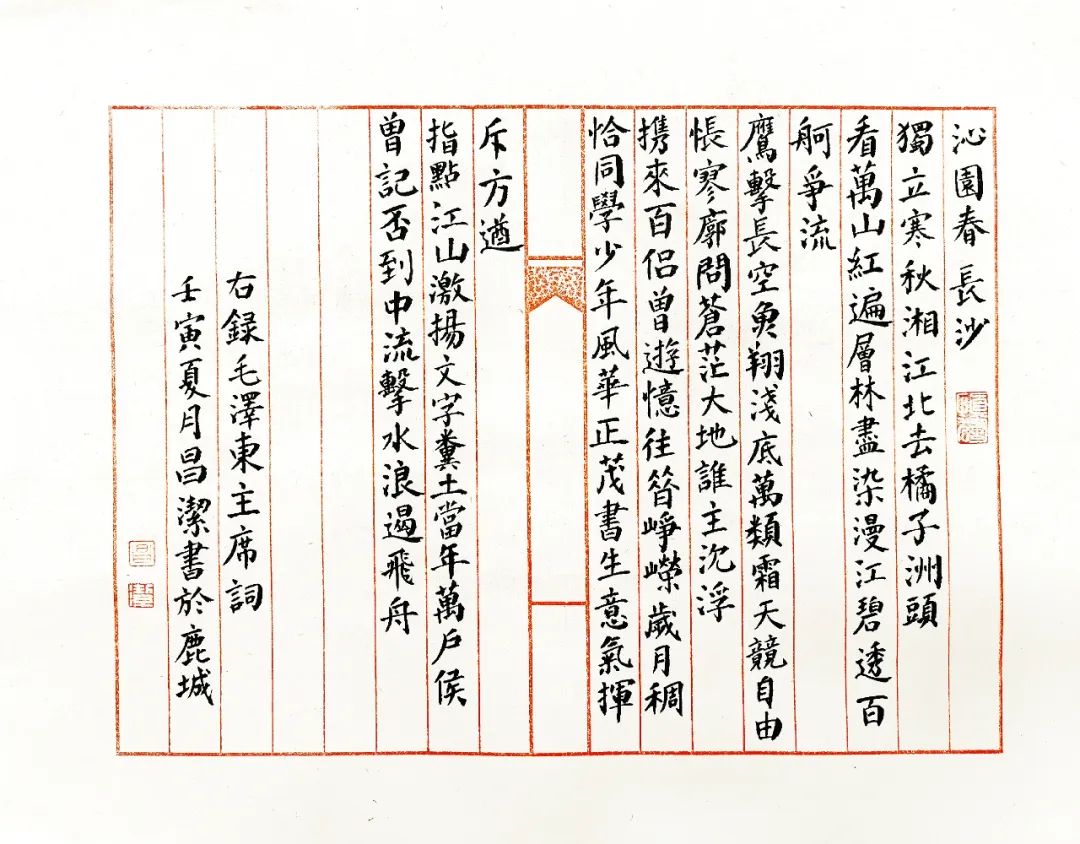 沁園春 長沙
獨立寒秋湘江北去橘子洲頭
看萬山紅遍層林盡染漫江碧透百
舸爭流
鷹擊長空魚翔淺底萬類霜天競自由
悵寥廓問蒼茫大地誰主沉浮
携來百侶曾遊憶往昝崢嶸歲月稠
恰同學少年風華正茂書生意氣揮
斥方遒
指點江山激揚文字糞土當年萬戶侯
曾記否到中流擊水浪遏飛舟
右録毛澤東主席詞
壬寅夏月昌潔書於鹿城